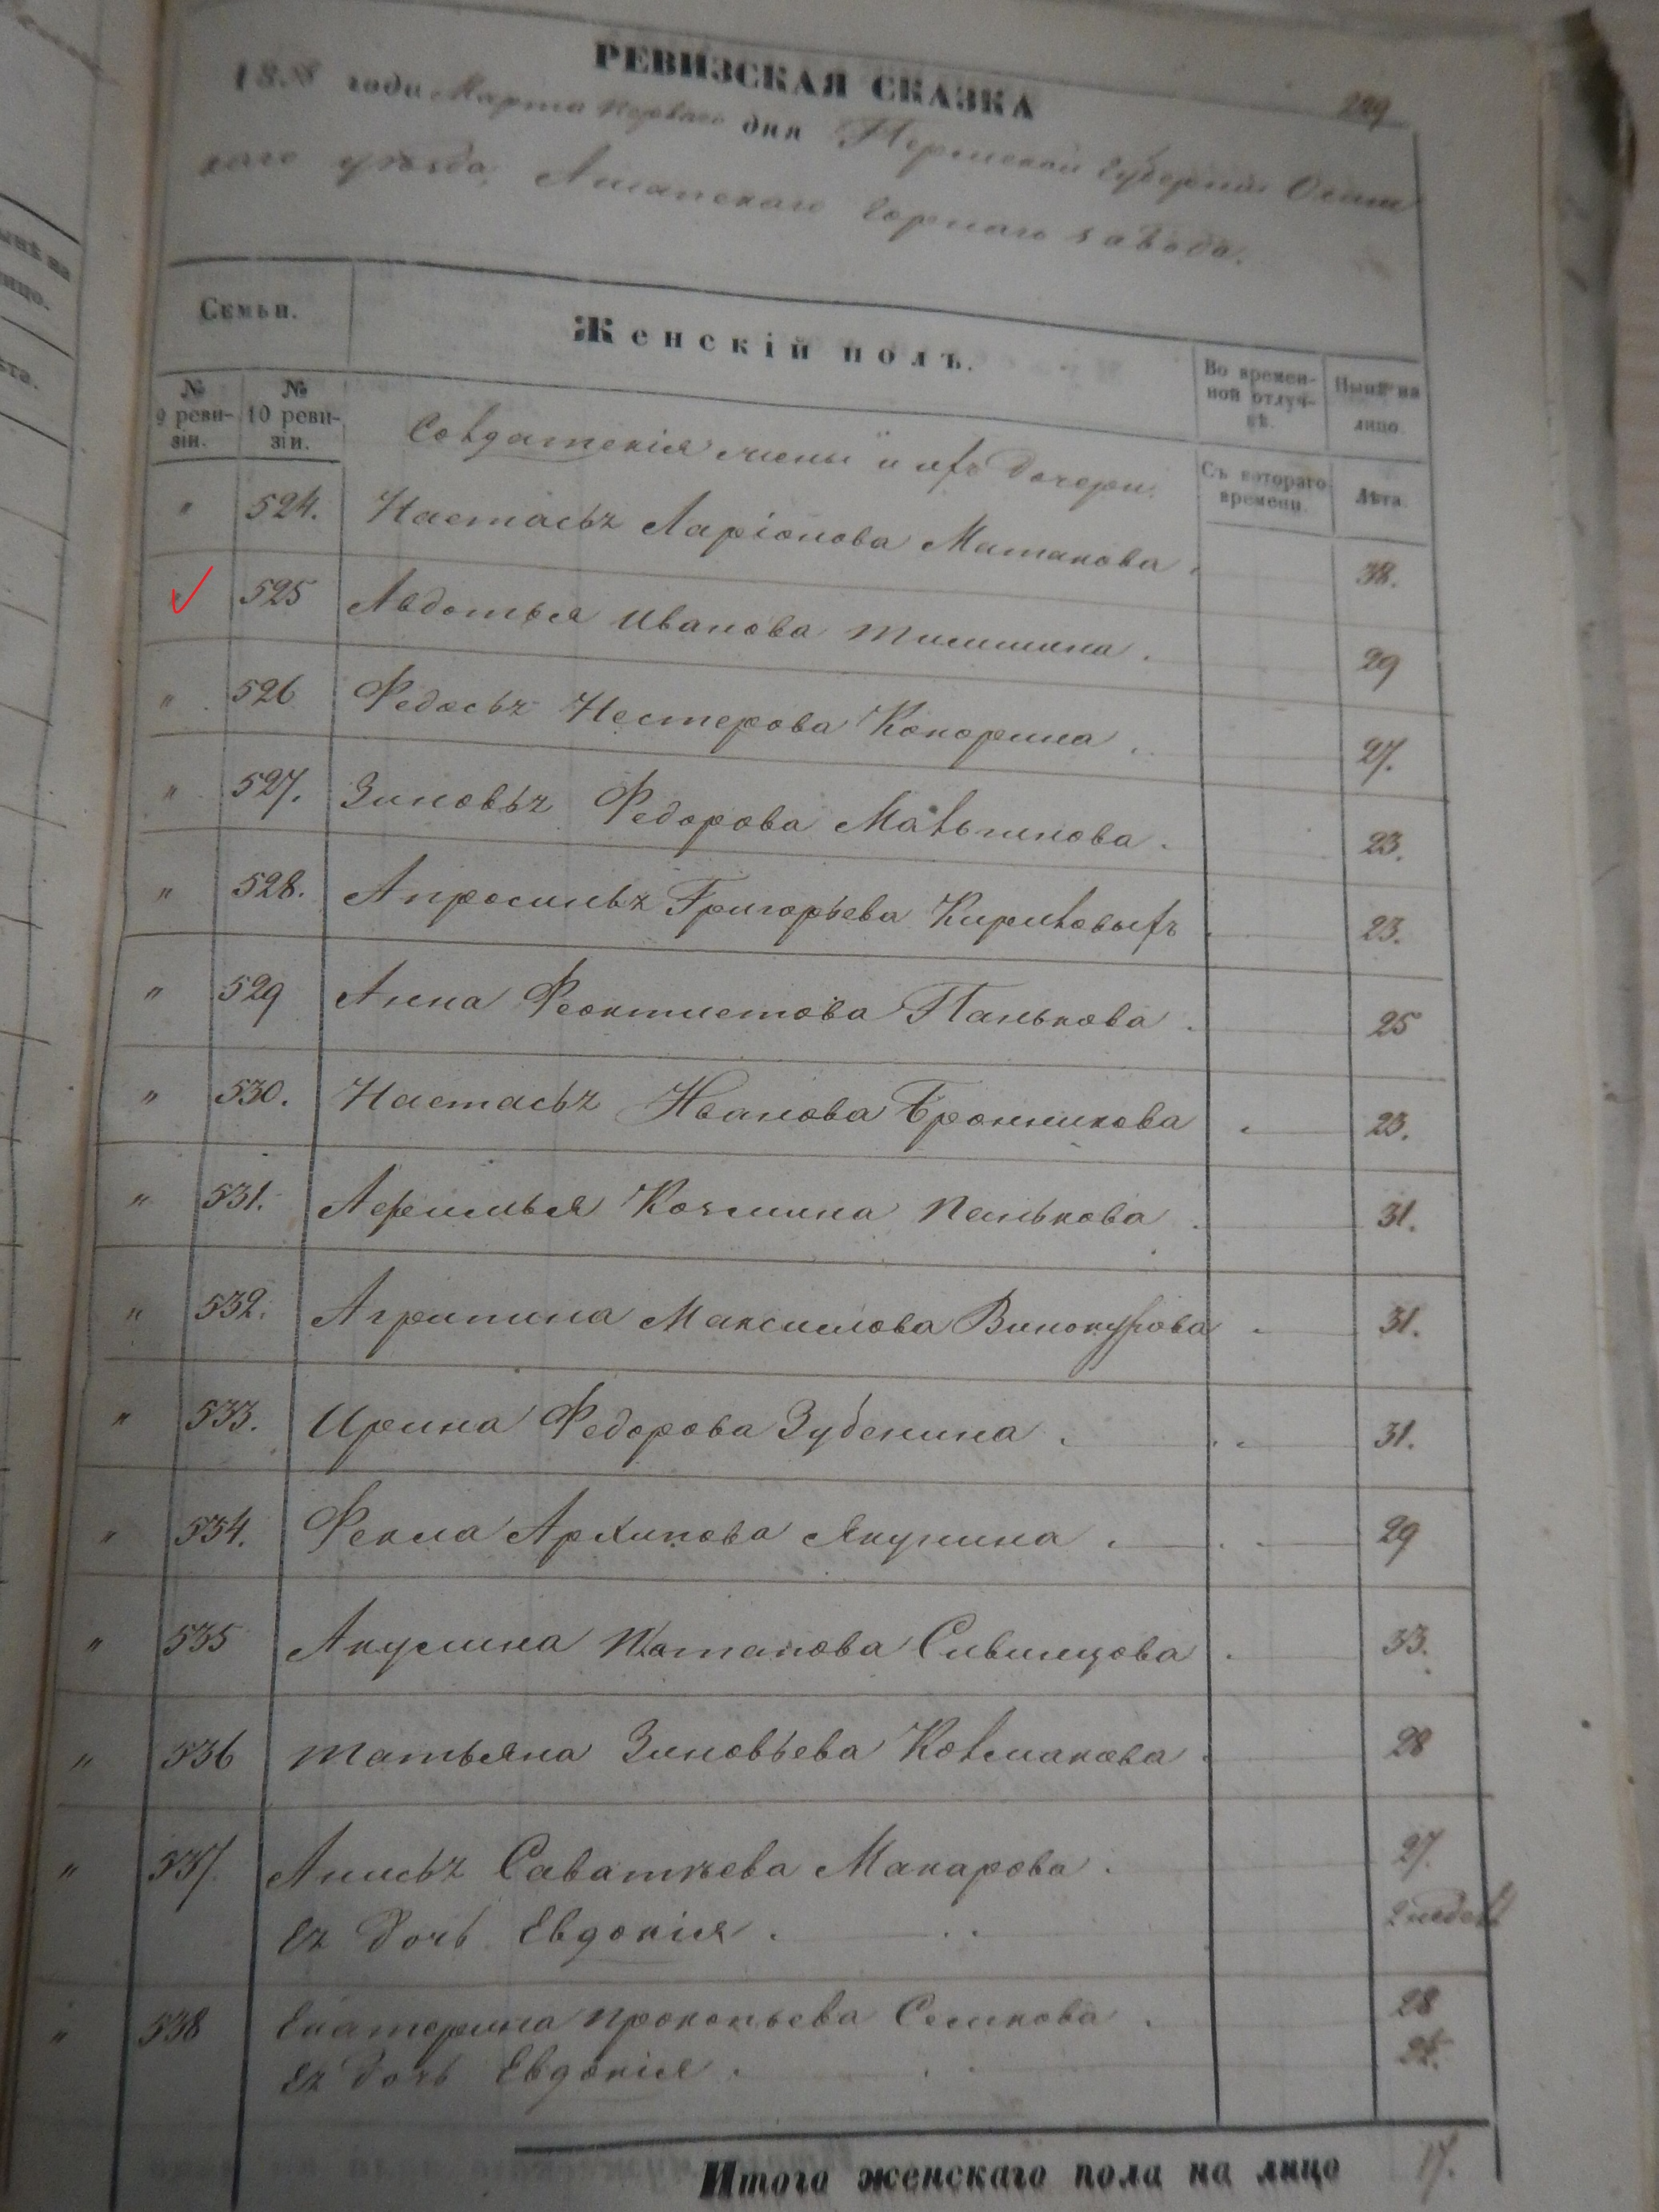 РЕВИЗСКАЯ СКАЗКА
209
18 года Марта перваго дня Пермской Губернии Осинс
каго уѣзда, Ашапскаго Горнаго завода.
Семьи.
Женскій полъ.
Во времен-
ной отлуч-
кѣ.
Нынѣ на
лицо.
№
9 реви-
зіи.
№
10 реви-
зіи.
Съ котораго
времени.
Лѣта.
Солдатскія жены и ихъ дочери.
" 524. Настасья Ларіонова Матакова. 38.
" 525 Авдотья Иванова 29
" 526 Федосья Нестерова Кокорина. 27.
" 527. Зиновья Федорова Мальчикова. 23.
" 528. Апросинья Григорьева Кириловыхъ. 23.
" 529 Анна Феоктистова Панькова. 25
" 530. Настасья Иванова Бронникова 23.
" 531. Афимья Козмина Панькова. 31.
" 532. Агрипина Максимова Винокурова 31.
" 533. Ирина Федорова Зубенина. 31.
" 534. Фекла Архипова Якунина. 29
" 535 Акулина Потапова Сивинцова. 33.
" 536 Татьяна Зиновьева Колмакова. 28
" 537. Анисья Саватѣева Макарова. 27.
Ея дочь Евдокія. 2 недѣл
" 538 Екатерина Прокопьева Семкова. 28
Ея дочь Евдокія.
Итого женскаго пола на лицо 17.